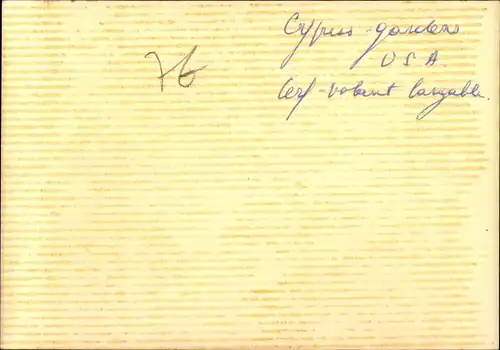 Cypress-gardens
USA.
76
Cerf-volant largable.